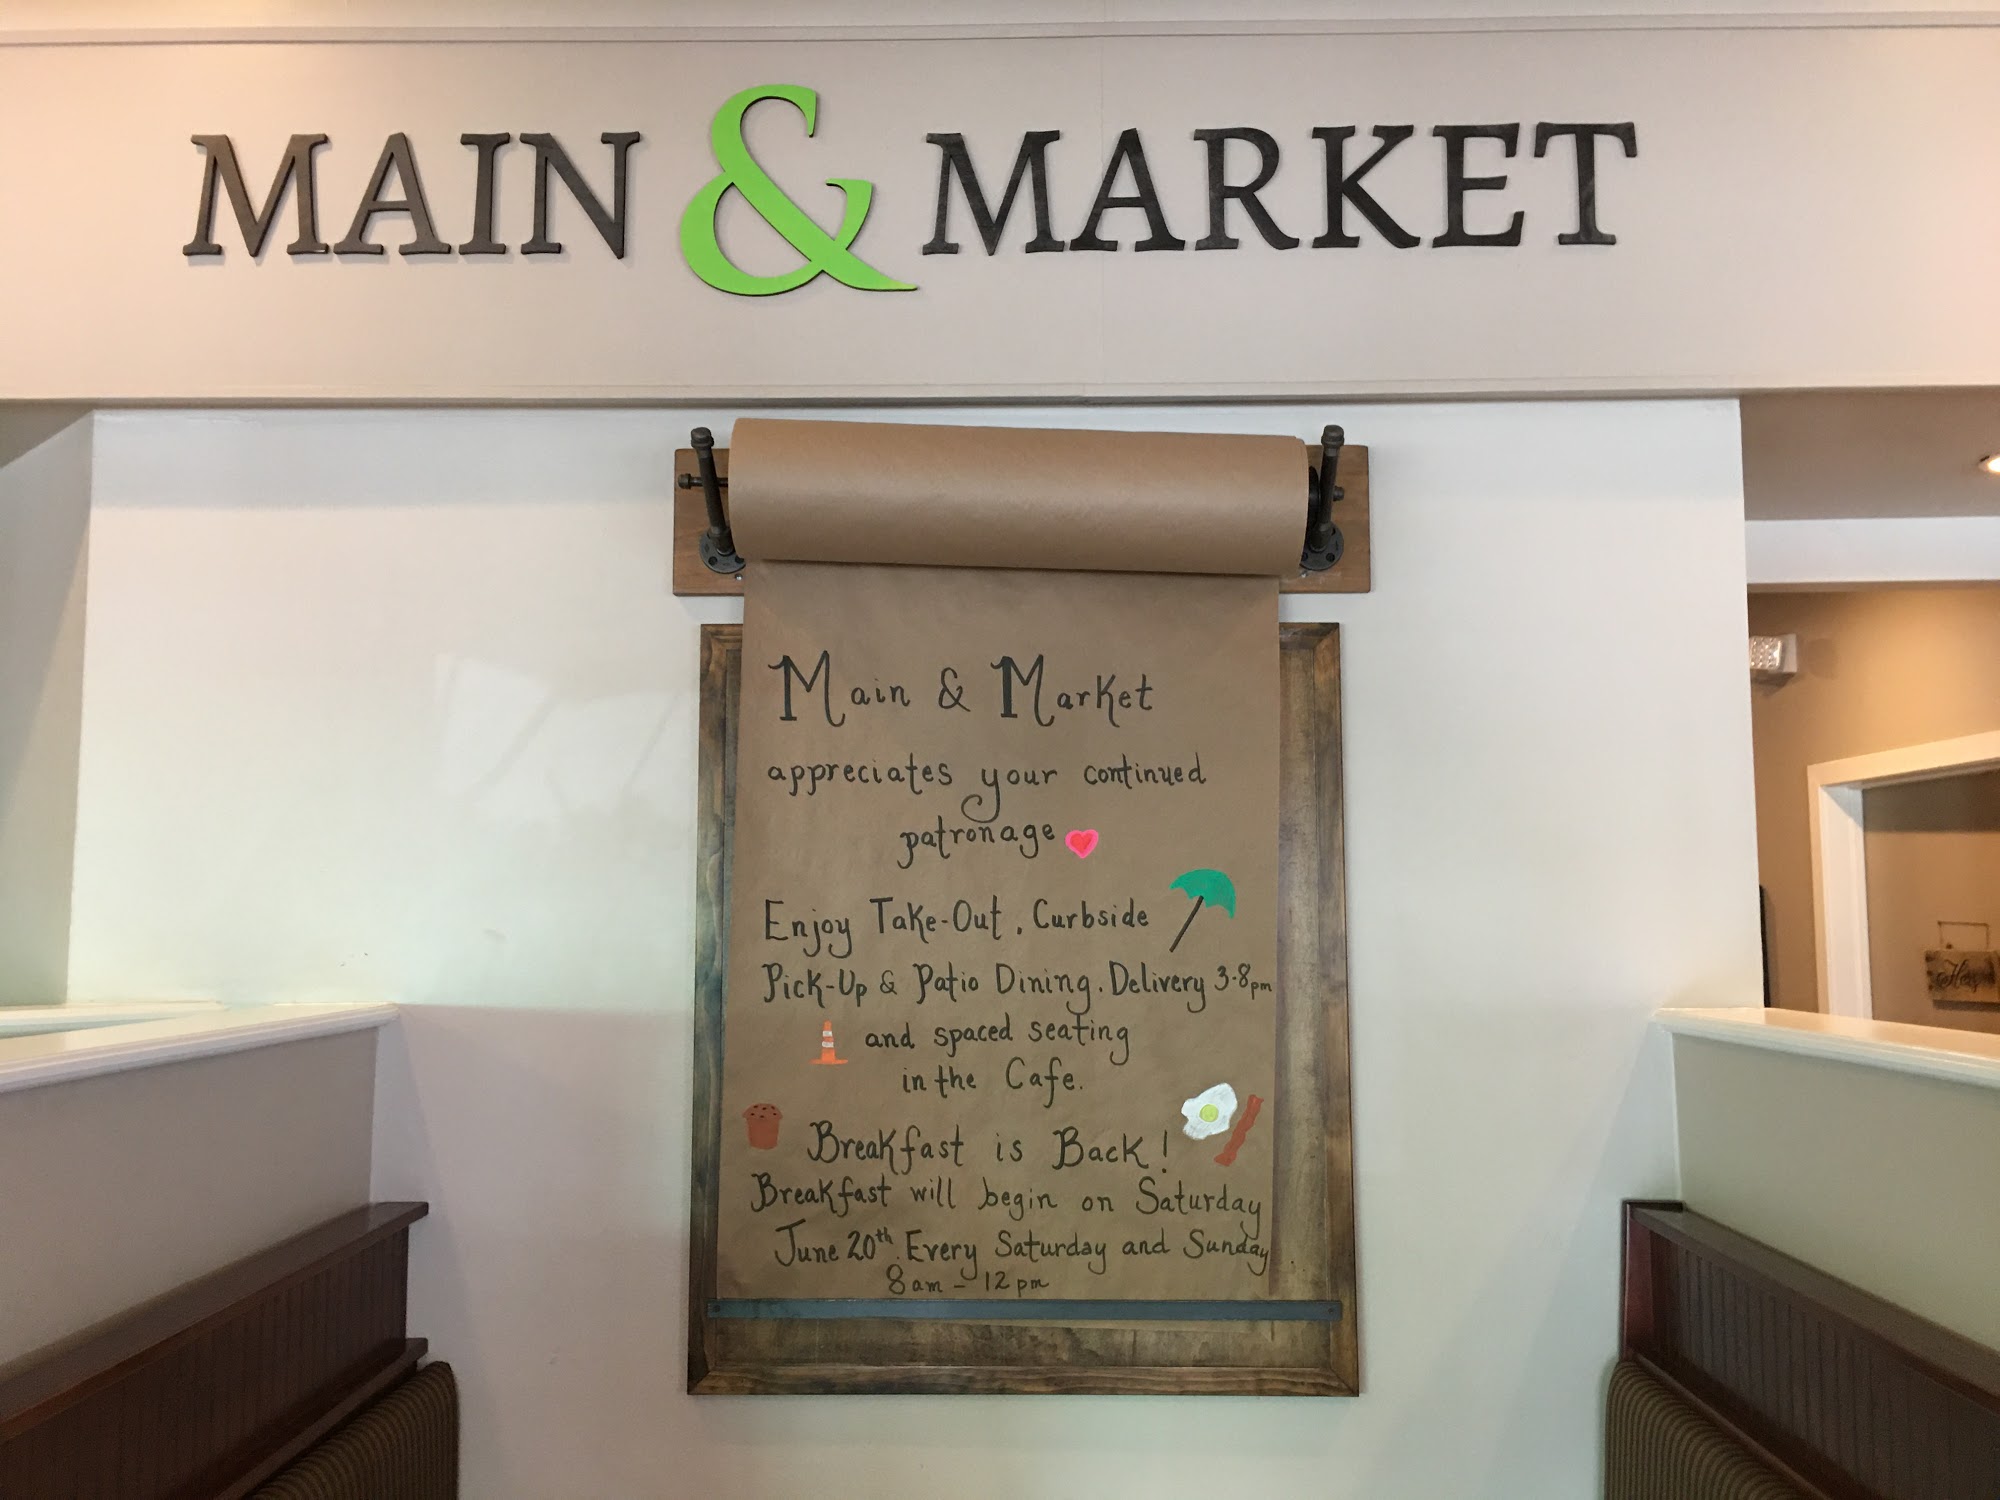 MAIN & MARKET
Main & Market
appreciates your continued
patronage
Enjoy Take-Out, Curbside
Pick-Up & Patio Dining. Delivery 3-8pm
and spaced seating
in the Cafe.
Breakfast is Back!
Breakfast will begin on Saturday
June 20th. Every Saturday and Sunday
8am - 12pm